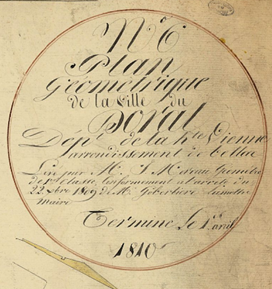 N° 6
Plan
Géométrique
de la Ville du
Dorat
Dépt. de la hte Vienne
arrondissement de bellac
Levé par Mr. J. Géometre
de 1re Classe, Conformement à l'arrêté du
22 9bre 1809 de M.
Maire
Terminé le 1er avril
1810